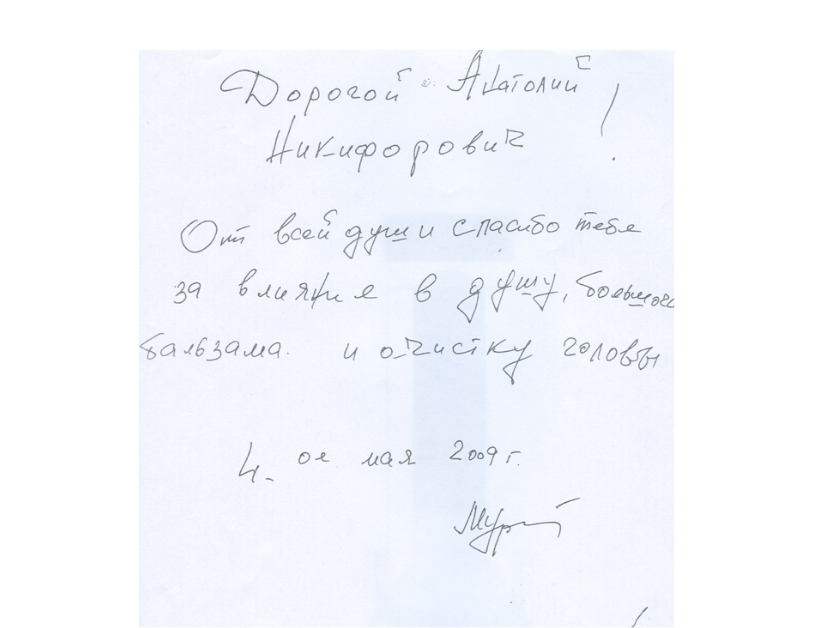 Дорогой Анатолий
Никифорович !
От всей души спасибо тебе
за влияние в душу, большого
бальзама. и очистку головы
4. ое мая 2009 г.